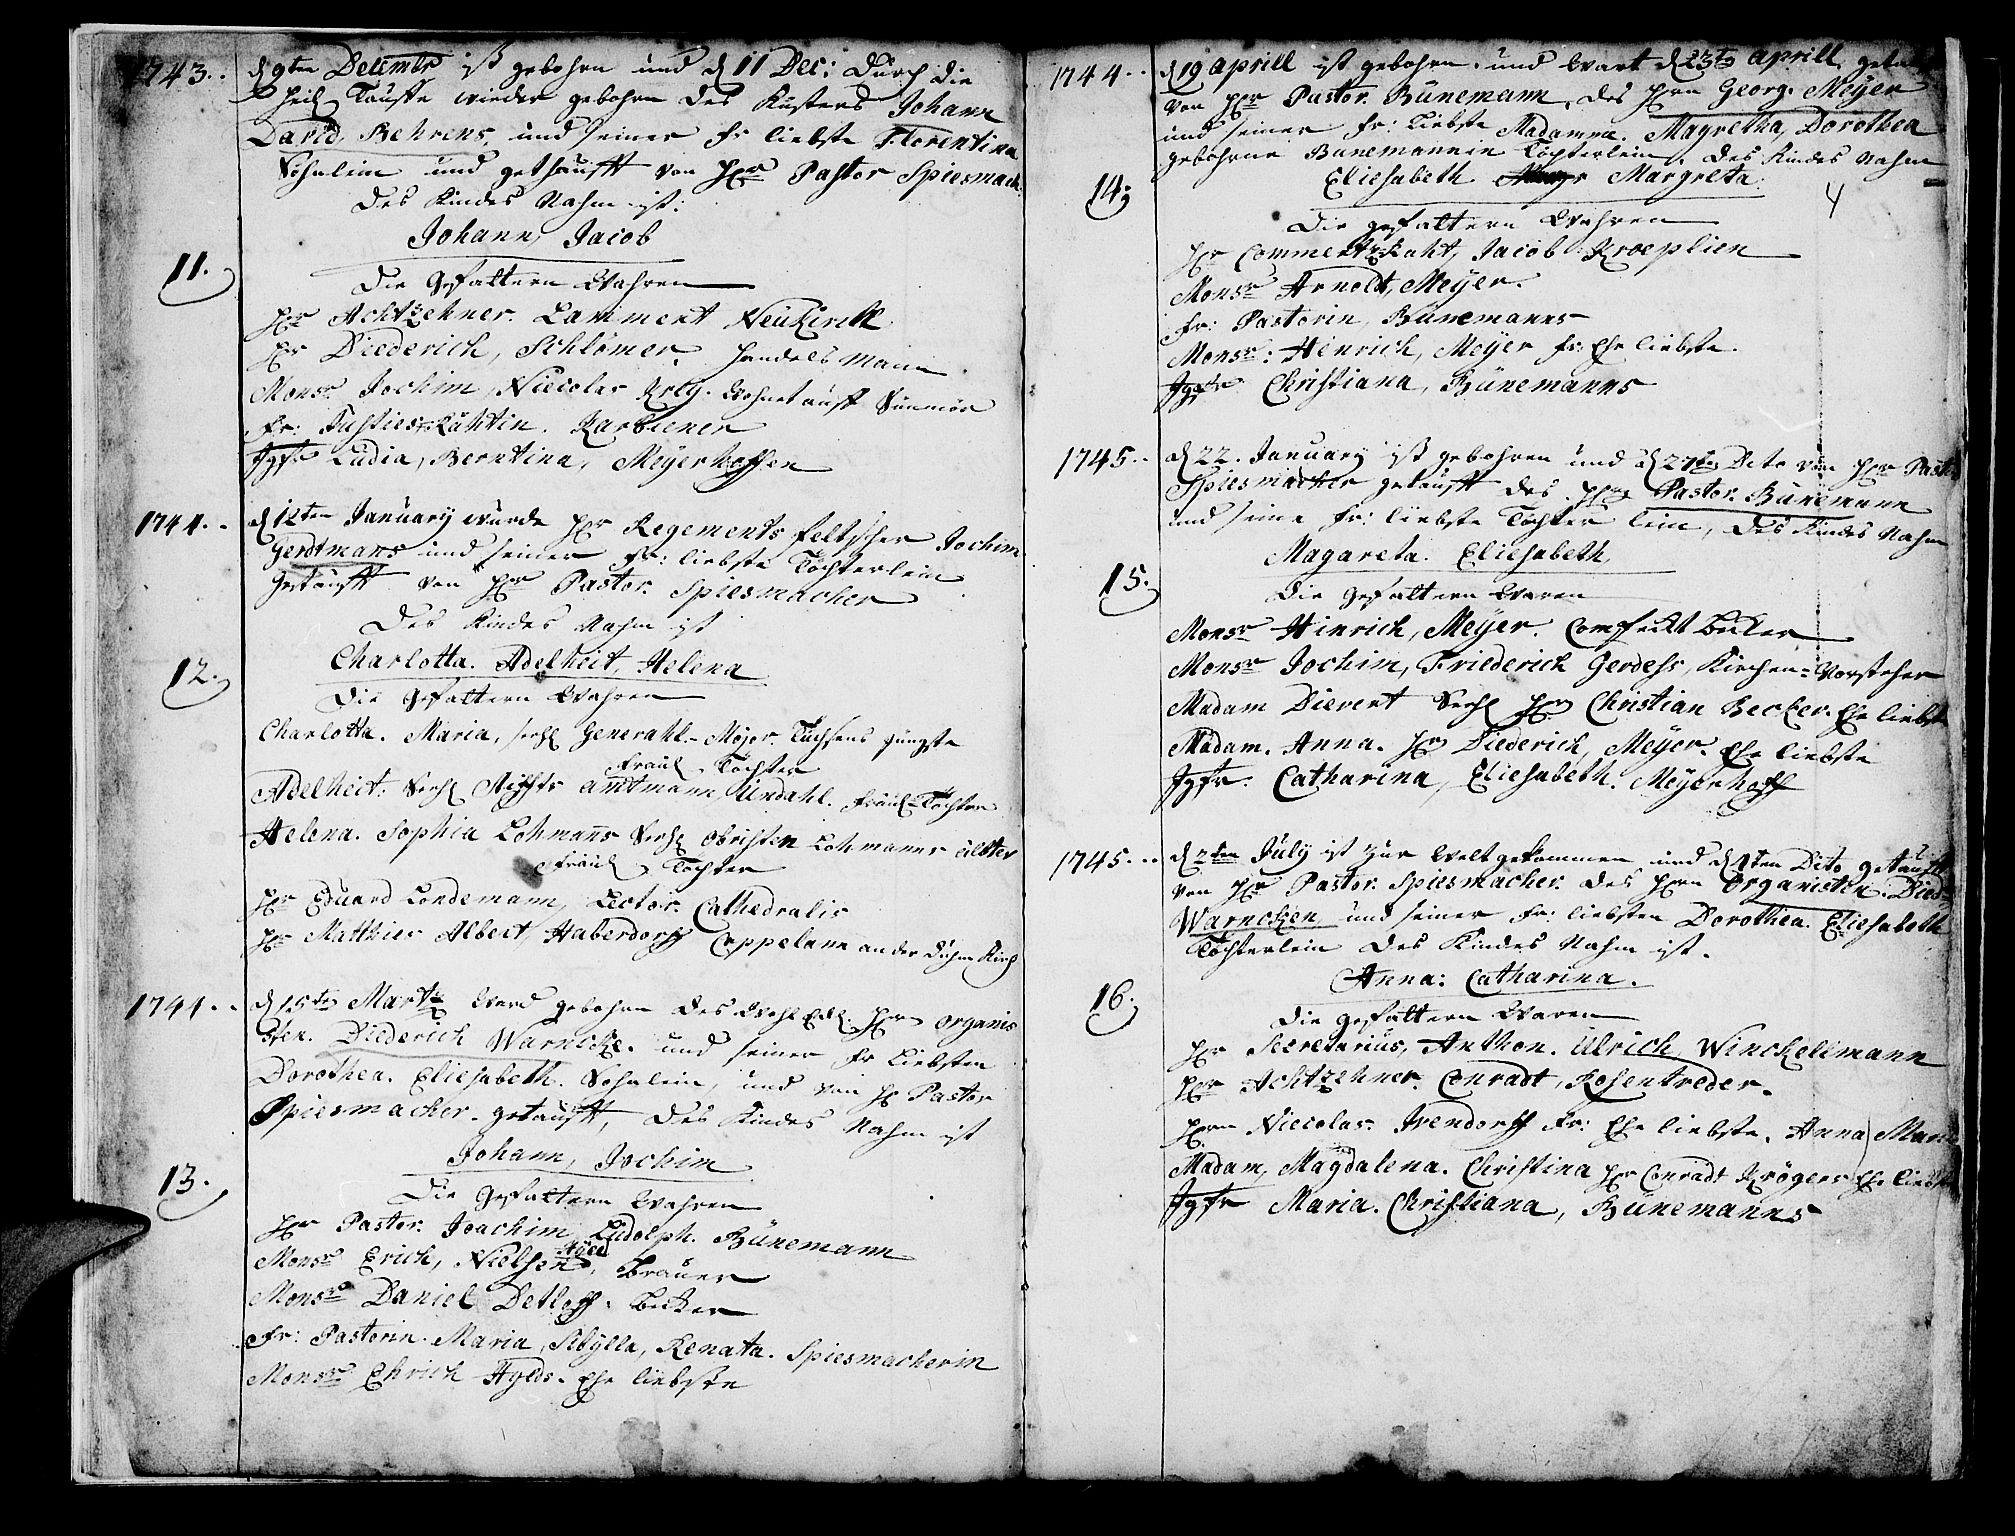 1743.. d 9ten Decembr ist gebohren und d 11 Dec: durch die
Heil Tauffe wieder gebohren des Küsters Johann
David Behrens, und seiner Fr liebste Florentina
Söhnlein und gethaufft von Hr Pastor Spiesmach:
des Kindes Nahm ist:
Johann, Jacob
11.
Die Gefattern Wahren
Hr Achtzehner. Lammert Neukirck
Hr Diederich, Schlömer. Handels Mann
Monsr Jochim, Niecolas Wohnhaft auff
Fr: Justiesrähtin. Karbiener
Jgfr Ludia, Berntina, Meyerhoffen
1744.. d 12ten January wurde Hr Regements feltscher Jochim
Gerdtmans und seiner Fr: liebste Töchterlein
Getaufft von Hr Pastor. Spiesmacher
Des Kindes Nahm ist
Charlotta. Adelheit, Helena
12.
Die Gefattern Wahren
Charlotta. Maria, sehl Generahl-Mejor. Tüchsens jüngste
Fräul Tochter
Adelheit. Sehl Stiffts amtmann, Undahl. Fräul-Tochter
Helena. Sophia Lohmanns Sehl Obristen Lohmanns älster
Fräul Tochter
Hr Eduard Londemann, Lector. Cathedralis
Hr Matthies Albert, Haberdorff Cappelann an der Duhm Kirch
1744.. d 15ten Martz Ward gebohren des Wohl Edl. Hrn Organis
ten. Diederich Warncke. und seiner Fr Liebsten
Dorothea. Eliesabeth. Söhnlein, und von H Pastor
Spiesmacher. getaufft, des Kindes Nahm ist
Johann, Jochim
13.
Die Gefattern Wahren
Hr Pastor. Joachim Ludolph. Bünemann
Monsr Erich, Nielsen, Brauer
Monsr Daniel Detloff. Becker
Fr: Pastorin. Maria, Sibylla, Renata. Spiesmacherin
Monsr Ehrich Hylds. Ehe liebste
1744.. d 19 Aprill ist gebohren. und Wart d 23ten Aprill getauf
von Hr Pastor. Bünemann, des Hrn Georg. Meyer
und seiner Fr: Liebste Madamme. Magretha, Dorothea
gebohrne Bünemannin Töchterlein. des Kindes Nahm
Eliesabeth Margreta
14.
4
Die gefattern Wahren
Hr Commertz-Raht, Jacob Kroeplien
Monsr Arnolt, Meyer.
Fr: Pastorin, Bünemanns
Monsr: Hinrich, Meyer Fr: Ehe liebste.
Jgfr Christiana, Bünemanns
1745.. d 22. January ist gebohren und d 27ten Dito von Hr Past:
Spiesmacher getaufft des Hrn Pastor. Bünemann
und seine Fr: liebste Töchterlein, des Kindes Nahm
Magareta. Eliesabeth,
15.
Die Gefattern Waren
Monsr Hinrich, Meyer. Comfeckt becker
Monsr Jochim, Friederich Gerdess, Kirchen-Vorsteher
Madam Dievert Sehl Hrn Christian Becker. Ehe liebste
Madam. Anna. Hr Diederich, Meyer. Ehe liebste
Jgfr. Catharina, Eliesabeth. Meyerhoff
1745... d 2ten July ist zur Welt gekommen und d 4ten Dito getaufft
von Hr Pastor. Spiesmacher. des Hrn Organisten. Died
Warncken, und seiner Fr: liebsten Dorothea. Eliesabeth
Töchterlein des Kindes Nahm ist.
Anna: Catharina.
16.
Die gefattern Waren
Hr Secretarius, Anthon. Ulrich Winckellmann
Hr Achtzehner. Conradt, Rosentreder.
Hrn Niecolas. Irendorff Fr: Ehe liebste. Anna Mari
Madam, Magdalena. Christina Hr Conradt Krögers Ehe liebst
Jgfr Maria. Christiana, Bünemanns